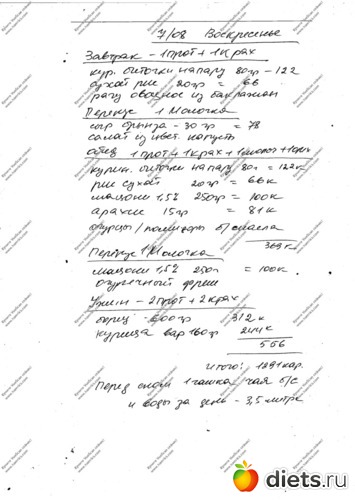 7/08 Воскресенье
Завтрак - 1 прот + 1 крах
кур. биточки на пару 80гр - 122
сухой рис 20гр = 66
рагу овощное из баклажан
Перекус 1 Молочка
сыр брынза - 30гр = 78
салат из цвет. капусты
обед 1 прот + 1 крах + 1 молоч +
курин. биточки на пару 80г = 122к
рис сухой 20гр = 66к
мацони 1,5% 250гр = 100к
арахис 15гр = 81к
огурцы / помидоры б/масла
369к
Перекус 1 Молочка
мацони 1,5% 250г = 100к.
огуречный фреш
Ужин - 2 прот + 2 крах
600гр 312к
курица вар 160гр 244к
556
итого: 1291кар.
Перед сном 1 чашка чая б/с
и воды за день - 3,5 литра
diets.ru